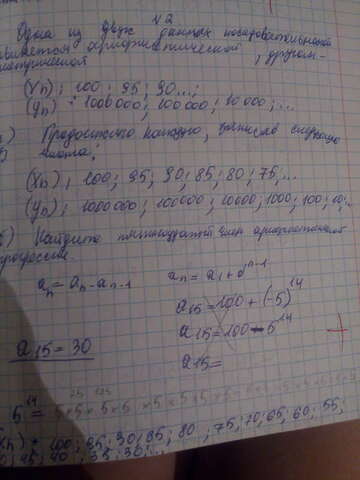 №2
Одна из двух данных последовательностей
является арифметической, другая-
метрической
(Xn), 100; 95; 90...;
(Yn) - 1000000; 100000; 10000;...
Продолжите каждую, записав следующие
(Xn), 100; 95; 90; 85; 80; 75,...
(Yn), 1000000; 100000; 10000; 1000; 100; 10;..
б) Найдите пятнадцатый член арифметической
прогрессии.
an = an - an-1
an = a1 + d^n-1
a15 = 100 + (-5)^14
a15 = 100 - 5^14
a15 = 30
a15 =
5^14 = 5×5×5×5×5×5×5×5
Xn) - 100; 95; 90; 85; 80; 75; 70; 65; 60; 55;
45; 40; 35; 30;...